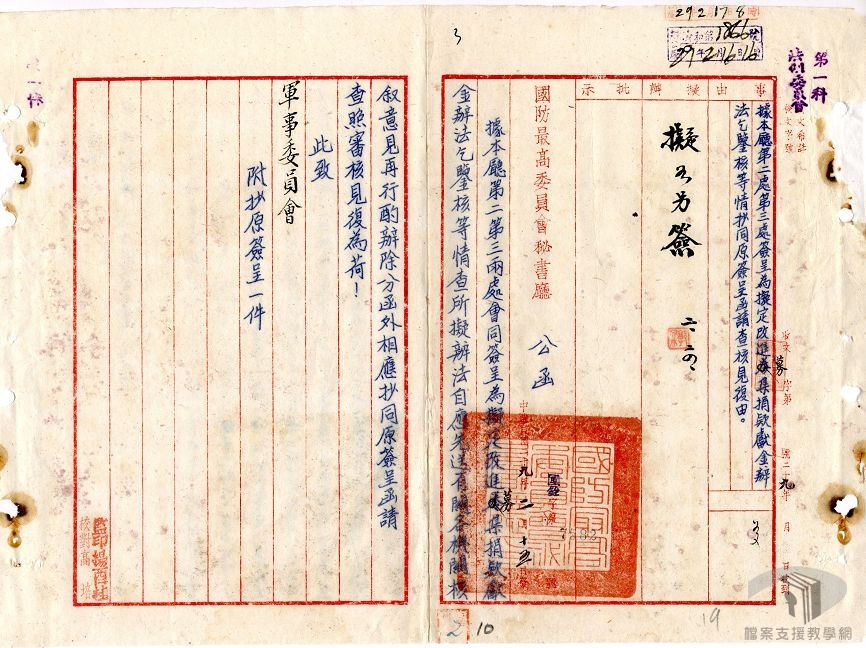 29 2 17 8
3
1866
29年2月16日16
第一科
法制委員會
事由
擬辦
批示
據本廳第二處第三處簽呈為擬定改進募集捐款獻金辦
法乞鑒核等情抄同原簽呈函請查核見復由。
擬另簽
國防最高委員會秘書廳
公函
據本廳第二第三兩處會同簽呈為擬定改進募集捐款獻
金辦法乞鑒核等情查所擬辦法自應先送有關各機關核
敘意見再行酌辦除分函外相應抄同原簽呈函請
查照審核見復為荷！
此致
軍事委員會
附抄原簽呈一件
校對高
2 10
19
檔案支援教學網